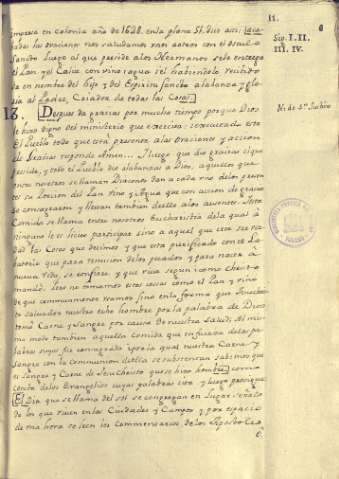 11.
6
impressa en colonia año de 1628. en la plana 51. dice assi: aca-
badas las oraciones nos saludamos unos a otros con el osculo
Santo. Luego al que preside a los Hermanos se le entrega
el Pan, y el Caliz con vino, i agua, el habiendolo recibido
da en nombre del hijo y del Espiritu Santo alabanza, y glo-
ria al Padre, Criador de todas las Cosas.
Sig. I. II.
III. IV.
13. Despues da gracias por mucho tiempo porque Dios
le hizo digno del ministerio que exercita: i executado esto
el Pueblo todo que está presente a las Oraciones y accion
de Gracias responde Amen. Y luego que dio gracias el que
preside, y todo el Pueblo dio alabanzas a Dios, aquellos que
entre nosotros se llaman Diaconos dan a cada uno de los presen-
tes la Porcion del Pan, vino y Agua que con accion de gracias
se consagraron y llevan tambien de ellos a los ausentes. Este
Comida se llama entre nosotros Eucharistia de la qual à
ninguno le es licito participar sino a aquel que crea ser ver-
dad las Cosas que decimos y que está purificado con el La-
batorio que para remission de los pecados, y para nacer a
nueva vida, se confiere y que viva segun como Christo
mandó. Pero no tomamos estas cosas como el Pan y vino
de que communmente usamos sino en la forma que Jesuchris-
to Salvador nuestro echo hombre por la palabra de Dios
tomó Carne y Sangre por causa de nuestra salud; Al mis-
mo modo tambien aquella comida que en fuerza de las pa-
labras suyas fue consagrada con la qual nuestra Carne y
Sangre con la communion de ella se substentan sabemos que
es Sangre y Carne de Jesuchristo que se hizo hombre;
consta de los Evangelios cuyas palabras cita y luego prosigue
El Dia que se llama del sol se congregan en Lugar señalado
los que viven en las Ciudades y Campos y por espacio
de una hora se leen los commentarios de los Apostoles